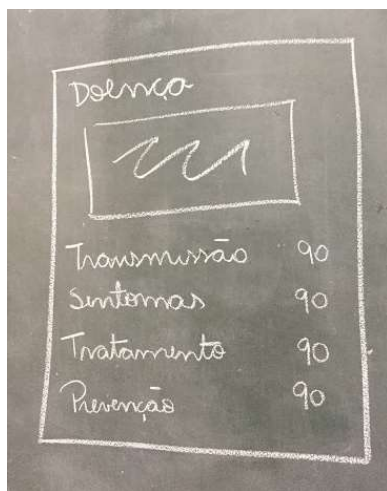 Doença
Transmissão 90
Sintomas 90
Tratamento 90
Prevenção 90